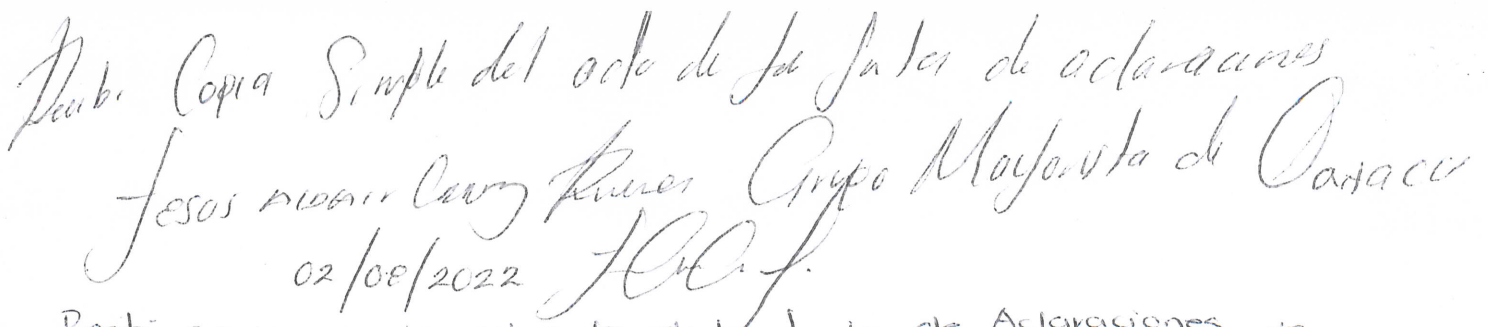 Recibi Copia Simple del acta de la Junta de aclaraciones
Jesus Aldair Cruz Grupo Mayorista de Oaxaca
02/08/2022
de Aclaraciones